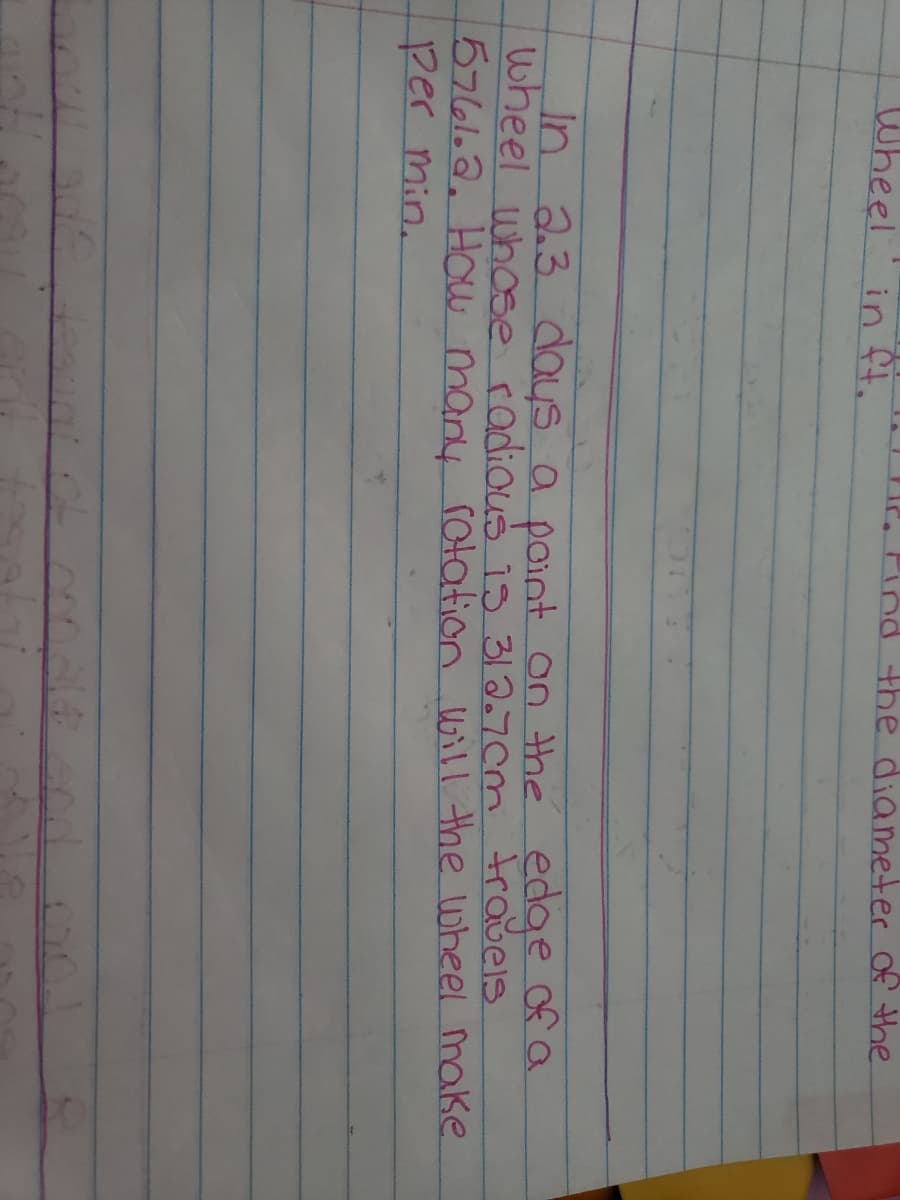 Find the diameter of the
wheel in ft.
In 2.3 days a point on the edge of a
wheel whose radious is 312.7cm travels
5761.2. How many rotation will the wheel make
per min.